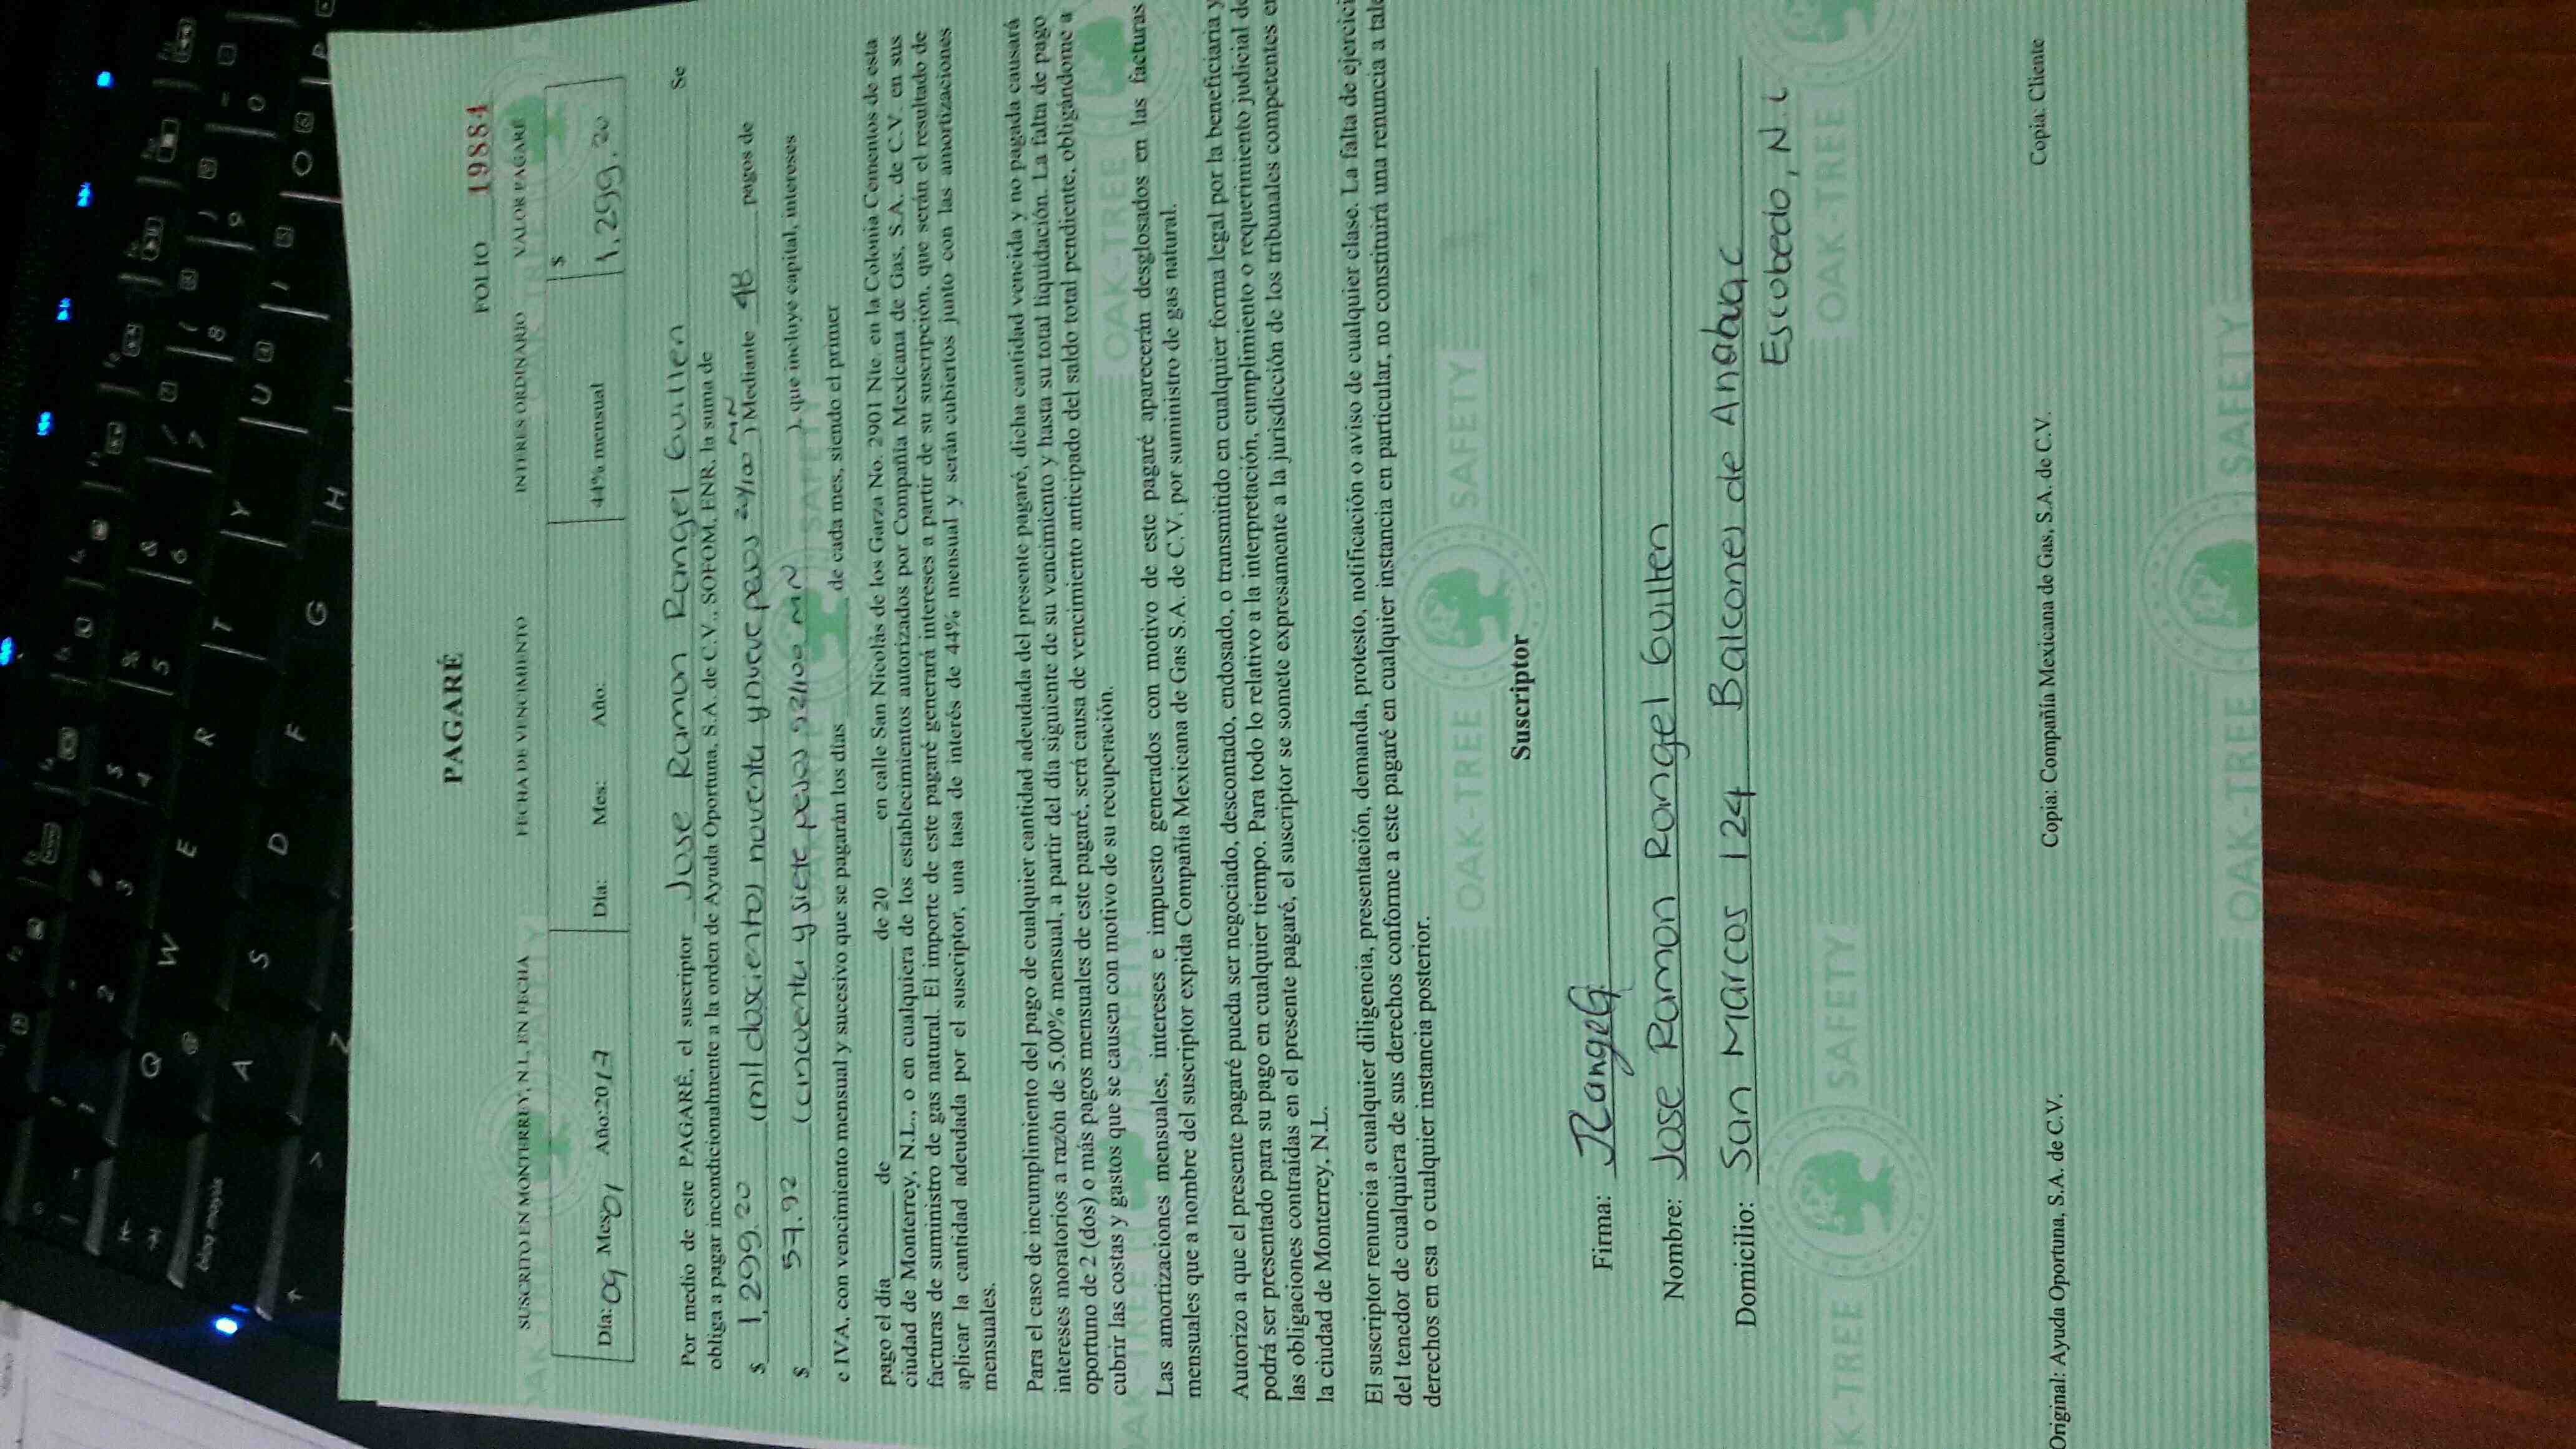 PAGARÉ
FOLIO 19884
SUSCRITO EN MONTERREY, N.L, EN FECHA FECHA DE VENCIMIENTO INTERES ORDINARIO VALOR PAGARÉ
Día: 09 Mes: 01 Año: 2017 Día: Mes: Año: 44% mensual $ 1,299.20
Por medio de este PAGARÉ, el suscriptor Jose Ramon Rangel Guillen Se
obliga a pagar incondicionalmente a la orden de Ayuda Oportuna, S.A. de C.V., SOFOM, ENR, la suma de
$ 1,299.20 (mil doscientos noventa y nueve pesos 20/100 MN) Mediante 48 pagos de
$ 57.92 (cincuenta y siete pesos 92/100 MN), que incluye capital, intereses
e IVA, con vencimiento mensual y sucesivo que se pagarán los días de cada mes, siendo el primer
pago el día de de 20 en calle San Nicolás de los Garza No. 2901 Nte. en la Colonia Cementos de esta
ciudad de Monterrey, N.L., o en cualquiera de los establecimientos autorizados por Compañía Mexicana de Gas, S.A. de C.V. en sus
facturas de suministro de gas natural. El importe de este pagaré generará intereses a partir de su suscripción, que serán el resultado de
aplicar la cantidad adeudada por el suscriptor, una tasa de interés de 44% mensual y serán cubiertos junto con las amortizaciones
mensuales.
Para el caso de incumplimiento del pago de cualquier cantidad adeudada del presente pagaré, dicha cantidad vencida y no pagada causará
intereses moratorios a razón de 5.00% mensual, a partir del día siguiente de su vencimiento y hasta su total liquidación. La falta de pago
oportuno de 2 (dos) o más pagos mensuales de este pagaré, será causa de vencimiento anticipado del saldo total pendiente, obligándome a
cubrir las costas y gastos que se causen con motivo de su recuperación.
Las amortizaciones mensuales, intereses e impuesto generados con motivo de este pagaré aparecerán desglosados en las facturas
mensuales que a nombre del suscriptor expida Compañía Mexicana de Gas S.A. de C.V. por suministro de gas natural.
Autorizo a que el presente pagaré pueda ser negociado, descontado, endosado, o transmitido en cualquier forma legal por la beneficiaria y
podrá ser presentado para su pago en cualquier tiempo. Para todo lo relativo a la interpretación, cumplimiento o requerimiento judicial de
las obligaciones contraídas en el presente pagaré, el suscriptor se somete expresamente a la jurisdicción de los tribunales competentes en
la ciudad de Monterrey, N.L.
El suscriptor renuncia a cualquier diligencia, presentación, demanda, protesto, notificación o aviso de cualquier clase. La falta de ejercici
del tenedor de cualquiera de sus derechos conforme a este pagaré en cualquier instancia en particular, no constituirá una renuncia a tale
derechos en esa o cualquier instancia posterior.
Suscriptor
Firma: JRangelG
Nombre: Jose Ramon Rangel Guillen
Domicilio: San Marcos 124 Balcones de Anahuac
Escobedo, N.L
Original: Ayuda Oportuna, S.A. de C.V. Copia: Compañía Mexicana de Gas, S.A. de C.V. Copia: Cliente
OAK-TREE SAFETY